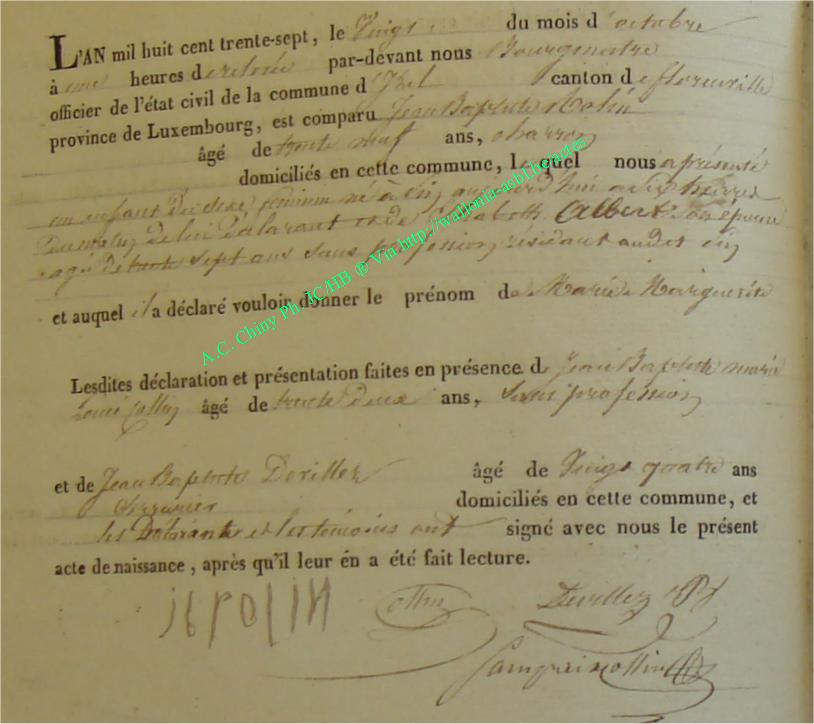 L'AN mil huit cent trente-sept, le Vingt du mois d'octobre
à une heures de relevée par-devant nous Bourgmestre
officier de l'état civil de la commune d'Izel canton de florenville
province de Luxembourg, est comparu Jean Baptiste
âgé de trente neuf ans, charron
domiciliés en cette commune, lequel nous a présenté
un enfant du sexe féminin né à aujourd'hui a six heures
du matin de lui Déclarant et de Elisabeth Albert son épouse
agé de trente sept ans sans profession résidant audit
et auquel il a déclaré vouloir donner le prénom de Marie Marguerite
Lesdites déclaration et présentation faites en présence de Jean Baptiste marie
Louis Collin âgé de trente deux ans, sans profession
et de Jean Baptiste Devillez âgé de Vingt quatre ans
Serrurier domiciliés en cette commune, et
les Déclarants et les témoins ont signé avec nous le présent
acte de naissance, après qu'il leur en a été fait lecture.
Collin Devillez JB
A.C. Chiny Ph JC/HB ® Via http://wallonia-asbl.be/actes